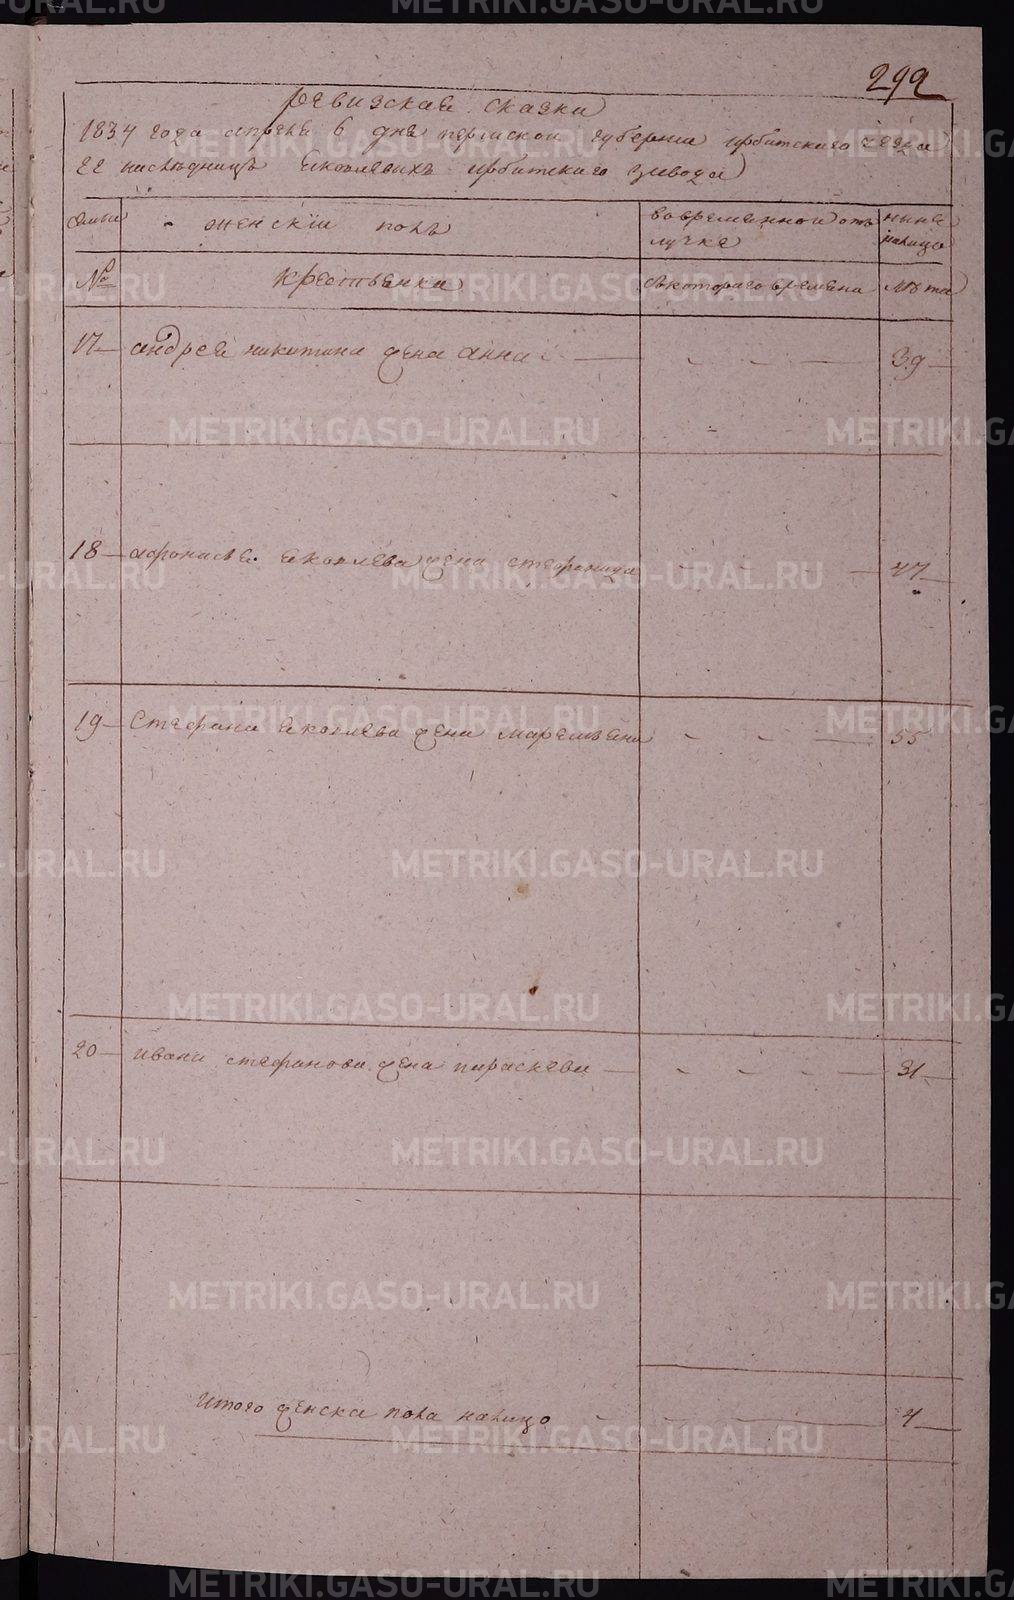 292
Ревизская сказка
1834 года апреля 6 дня пермской губернии ирбитского уезда
наследницъ Яковлевыхъ ирбитского завода
женскiй полъ
во временной от
ныне
лучке
налицо
№
крестьянки
съ которого времени
лѣта
17 андрея никитина жена анна 39
18 афонасья яковлева жена стефанида 47
19 Стефана яковлева жена 55
20 ивана стефанова жена параскева 31
Итого женска пола налицо 4
METRIKI.GASO-URAL.RU